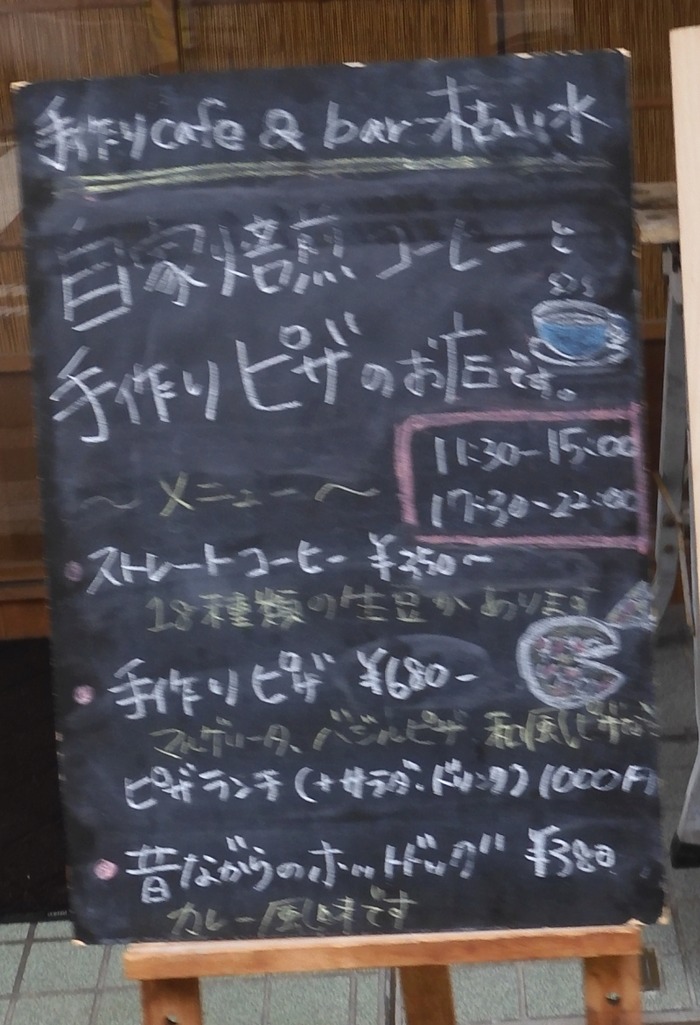 手作りcafe & bar 枯山水
自家焙煎コーヒーと
手作りピザのお店です。
11:30-15:00
17:30-22:00
～メニュー～
ストレートコーヒー ¥350～
18種類の生豆があります
手作りピザ ¥680-
マルゲリータ、バジルピザ 和風ピザ
ピザランチ(+サラダ・ドリンク)1000円
昔ながらのホットドッグ ¥380
カレー風味です